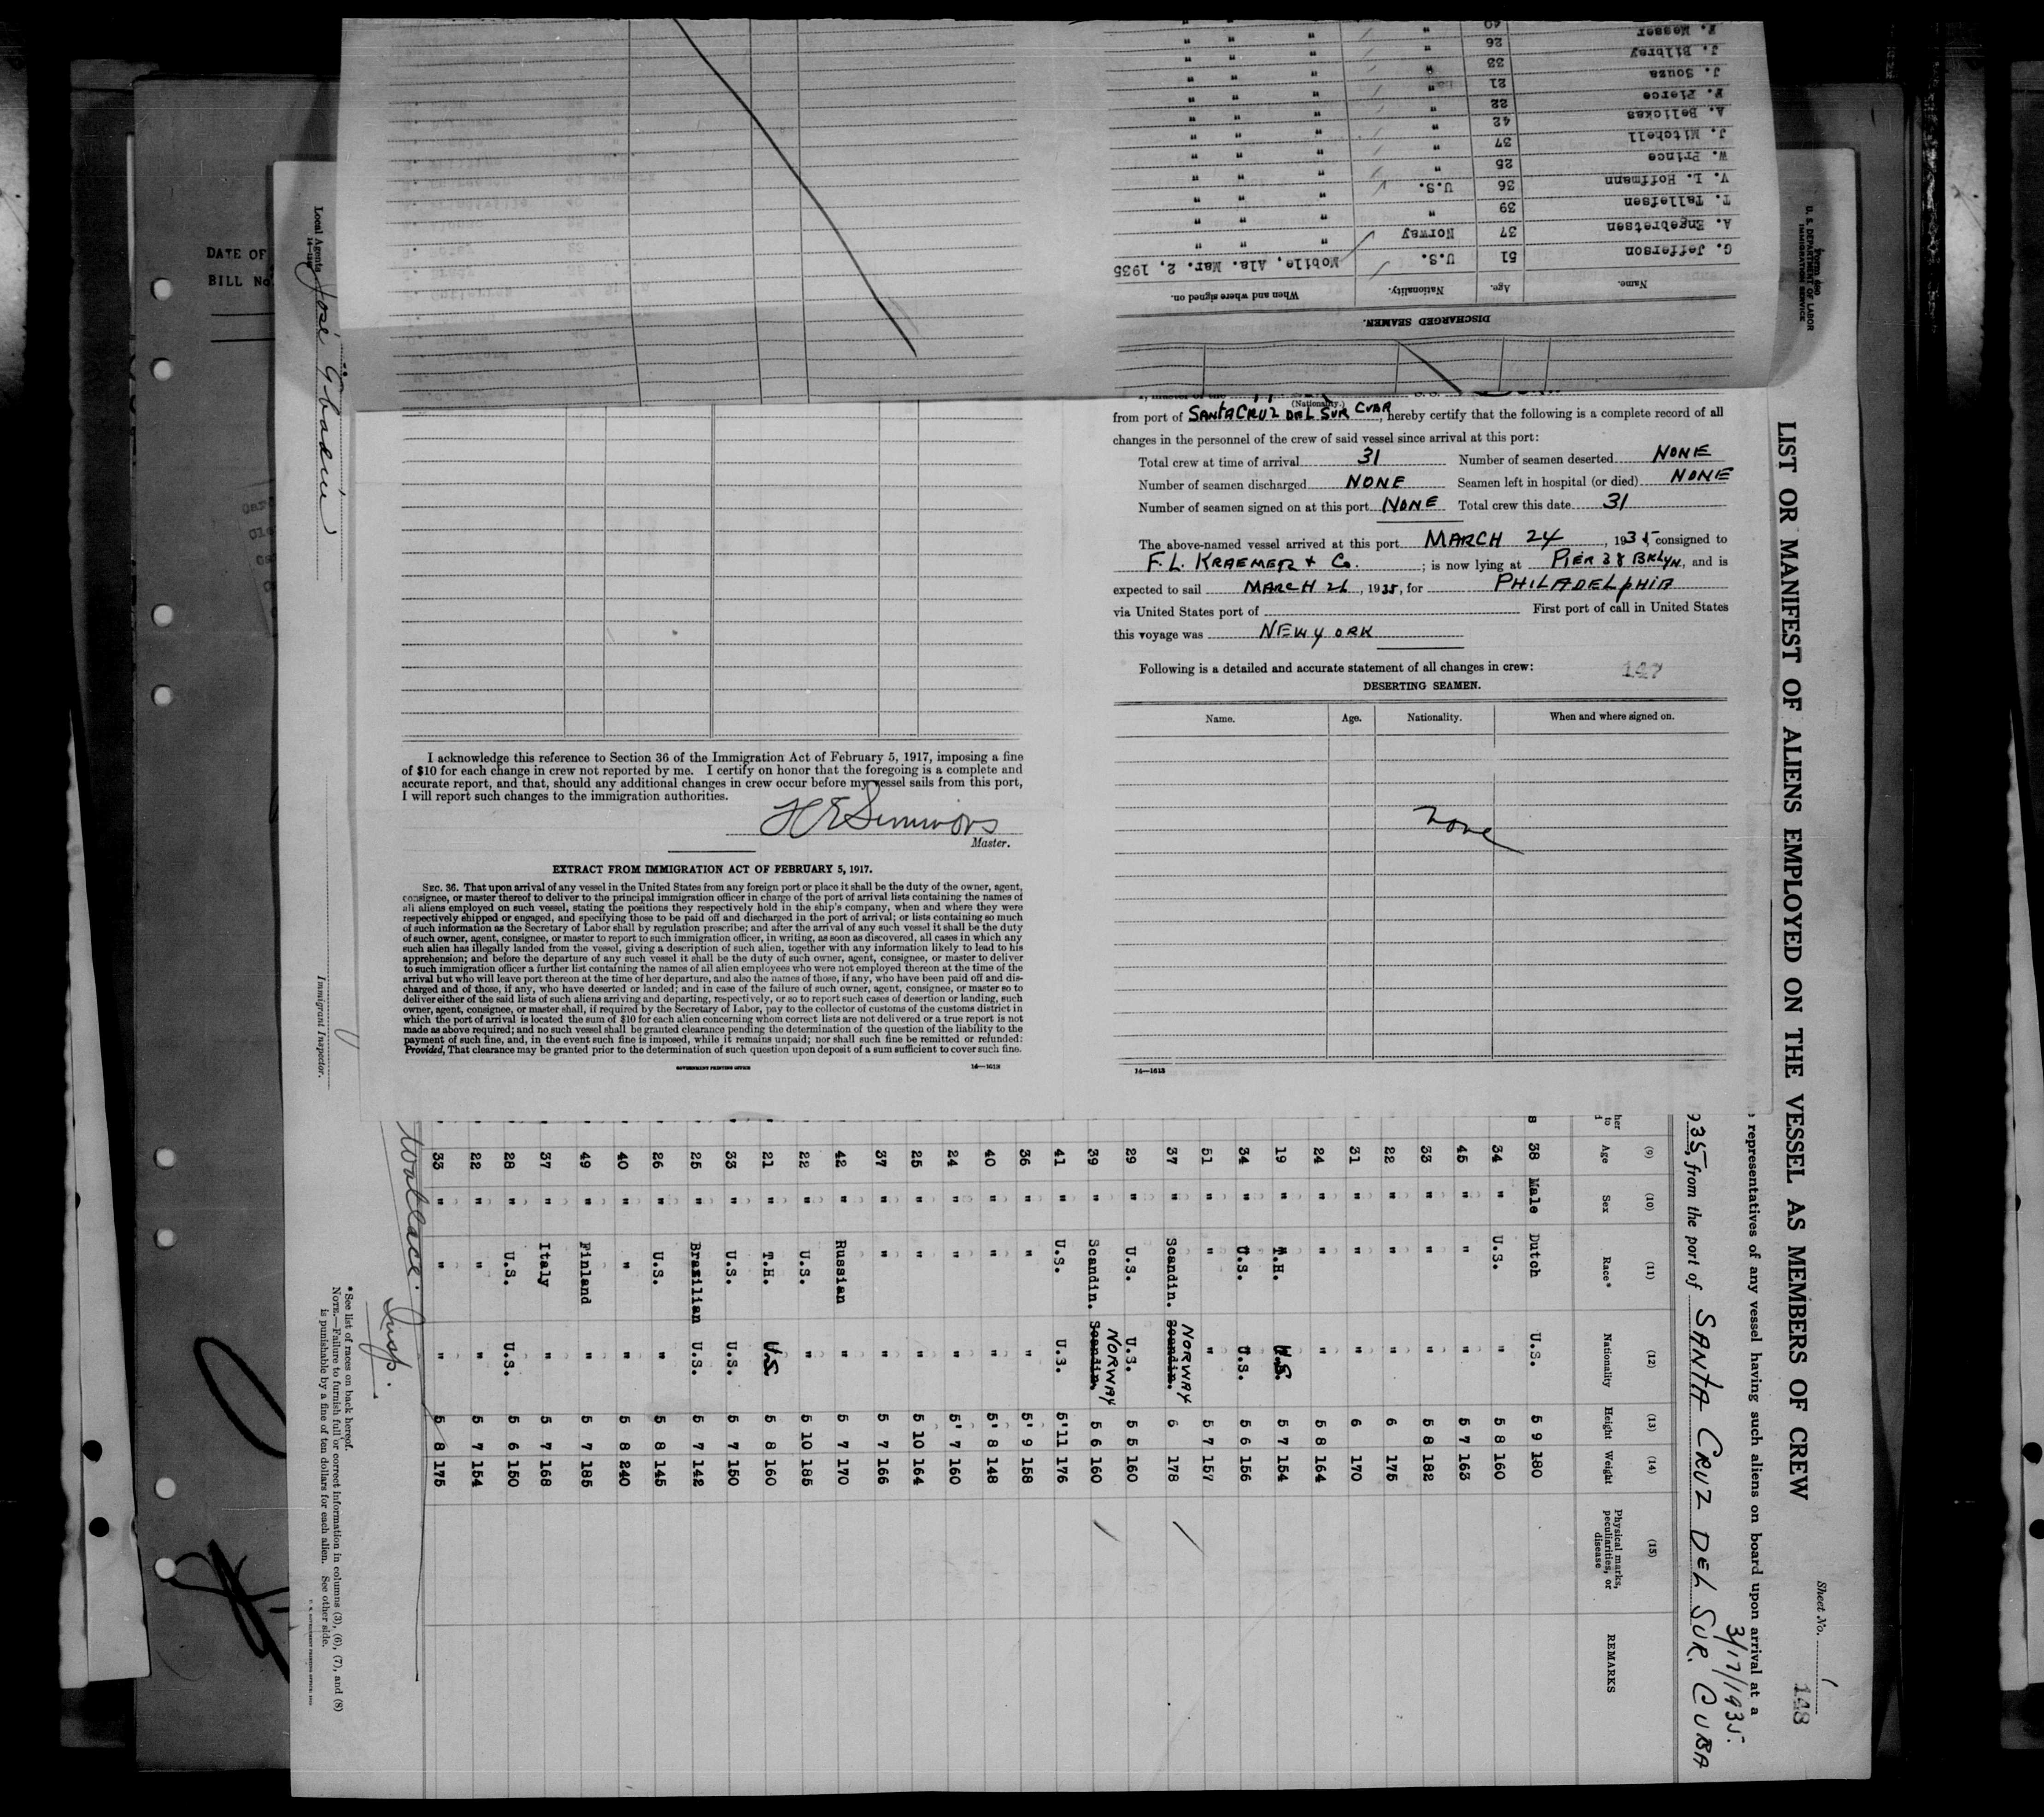 DATE OF
BILL No.
F. Mosser 40 " " " "
J. Bilbray 26 " " " "
J. Souza 33 " " " "
F. Pierce 21 " " " "
A. Bellckas 22 " " " "
J. Mitchell 42 " " " "
W. Prince 37 " " " "
V. L. Hoffmann 25 " " " "
T. Tallefsen 36 U.S. " " "
A. Engebretsen 39 " " " "
G. Jefferson 37 Norway " " "
51 U.S. Mobile, Ala. Mar. 2, 1935
Name. Age. Nationality. When and where signed on.
DISCHARGED SEAMEN.
(Nationality.)
from port of SANTA CRUZ DEL SUR CUBA, hereby certify that the following is a complete record of all
changes in the personnel of the crew of said vessel since arrival at this port:
Total crew at time of arrival 31 Number of seamen deserted NONE
Number of seamen discharged NONE Seamen left in hospital (or died) NONE
Number of seamen signed on at this port NONE Total crew this date 31
The above-named vessel arrived at this port MARCH 24, 1935, consigned to
F. L. KRAEMER & Co. ; is now lying at PIER 38 BKLYN, and is
expected to sail MARCH 26, 1935, for PHILADELPHIA
via United States port of First port of call in United States
this voyage was NEW YORK
Following is a detailed and accurate statement of all changes in crew:
147
DESERTING SEAMEN.
Name. Age. Nationality. When and where signed on.
None
14—1613
I acknowledge this reference to Section 36 of the Immigration Act of February 5, 1917, imposing a fine
of $10 for each change in crew not reported by me. I certify on honor that the foregoing is a complete and
accurate report, and that, should any additional changes in crew occur before my vessel sails from this port,
I will report such changes to the immigration authorities.
H E Simmons
Master.
EXTRACT FROM IMMIGRATION ACT OF FEBRUARY 5, 1917.
SEC. 36. That upon arrival of any vessel in the United States from any foreign port or place it shall be the duty of the owner, agent,
consignee, or master thereof to deliver to the principal immigration officer in charge of the port of arrival lists containing the names of
all aliens employed on such vessel, stating the positions they respectively hold in the ship's company, when and where they were
respectively shipped or engaged, and specifying those to be paid off and discharged in the port of arrival; or lists containing so much
of such information as the Secretary of Labor shall by regulation prescribe; and after the arrival of any such vessel it shall be the duty
of such owner, agent, consignee, or master to report to such immigration officer, in writing, as soon as discovered, all cases in which any
such alien has illegally landed from the vessel, giving a description of such alien, together with any information likely to lead to his
apprehension; and before the departure of any such vessel it shall be the duty of such owner, agent, consignee, or master to deliver
to such immigration officer a further list containing the names of all alien employees who were not employed thereon at the time of the
arrival but who will leave port thereon at the time of her departure, and also the names of those, if any, who have been paid off and dis-
charged and of those, if any, who have deserted or landed; and in case of the failure of such owner, agent, consignee, or master so to
deliver either of the said lists of such aliens arriving and departing, respectively, or so to report such cases of desertion or landing, such
owner, agent, consignee, or master shall, if required by the Secretary of Labor, pay to the collector of customs of the customs district in
which the port of arrival is located the sum of $10 for each alien concerning whom correct lists are not delivered or a true report is not
made as above required; and no such vessel shall be granted clearance pending the determination of the question of the liability to the
payment of such fine, and, in the event such fine is imposed, while it remains unpaid; nor shall such fine be remitted or refunded:
Provided, That clearance may be granted prior to the determination of such question upon deposit of a sum sufficient to cover such fine.
GOVERNMENT PRINTING OFFICE 14—1613
Form 680
U. S. DEPARTMENT OF LABOR
IMMIGRATION SERVICE
Sheet No. 1
148
LIST OR MANIFEST OF ALIENS EMPLOYED ON THE VESSEL AS MEMBERS OF CREW
representatives of any vessel having such aliens on board upon arrival at a
3/17/1935.
935, from the port of SANTA CRUZ DEL SUR. CUBA
(9) (10) (11) (12) (13) (14) (15)
Age Sex Race* Nationality Height Weight Physical marks, peculiarities, or disease REMARKS
38 Male Dutch U.S. 5 9 180
34 " U.S. " 5 8 160
45 " " " 5 7 163
33 " " " 5 8 182
22 " " " 6 175
31 " " " 6 170
24 " " " 5 8 164
19 " T.H. U.S. 5 7 154
34 " U.S. U.S. 5 6 156
51 " " " 5 7 157
37 " Scandin. Scandin. NORWAY 6 178
29 " U.S. U.S. 5 5 160
39 " Scandin. Scandin. NORWAY 5 6 160
41 " U.S. U.S. 5'11 176
36 " " " 5' 9 158
40 " " " 5' 8 148
24 " " " 5' 7 160
25 " " " 5 10 164
37 " " " 5 7 166
42 " Russian " 5 7 170
22 " U.S. " 5 10 185
21 " T.H. U.S. 5 8 160
33 " U.S. U.S. 5 7 150
25 " Brazilian U.S. 5 7 142
26 " U.S. " 5 8 145
40 " " " 5 8 240
49 " Finland " 5 7 185
37 " Italy " 5 7 168
28 " U.S. U.S. 5 6 150
22 " " " 5 7 154
33 " " " 5 8 175
Wallace. Insp.
*See list of races on back hereof.
NOTE.—Failure to furnish full or correct information in columns (3), (6), (7), and (8)
is punishable by a fine of ten dollars for each alien. See other side.
Local Agents
Immigrant Inspector.